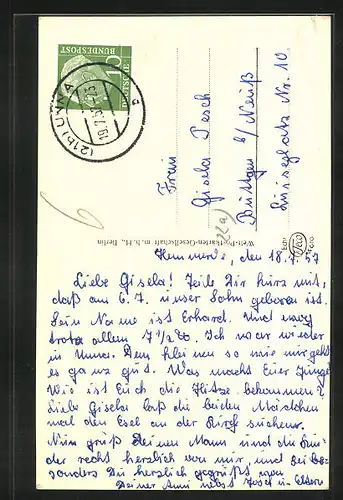 Hemmerde, den 18.7.57
Liebe Gisela! Teile Dir kurz mit,
daß am 6.7. unser Sohn geboren ist.
Sein Name ist Erhard. Und wog
trotz allem 7 1/2 Pf. Ich war wieder
in Unna. Dem kleinen so wie mir geht
es ganz gut. Was macht Euer Junge
Wie ist Euch die Hitze bekommen?
Liebe Gisela laß die beiden Mädchen
mal den Esel an der Kirch suchen.
Nun grüß Deinen Mann und die Kin-
der recht herzlich von mir, und sei be-
sonders Du herzlich gegrüßt von
Deiner Anni nebst Josef u. Eltern
Frau
Gisela Pesch
Büttgen b/ Neuß
Luiseplatz Nr. 10
22a)
Welt-Postkarten-Gesellschaft m. b. H., Berlin
DEUTSCHE
BUNDESPOST
10
(21b) UNNA